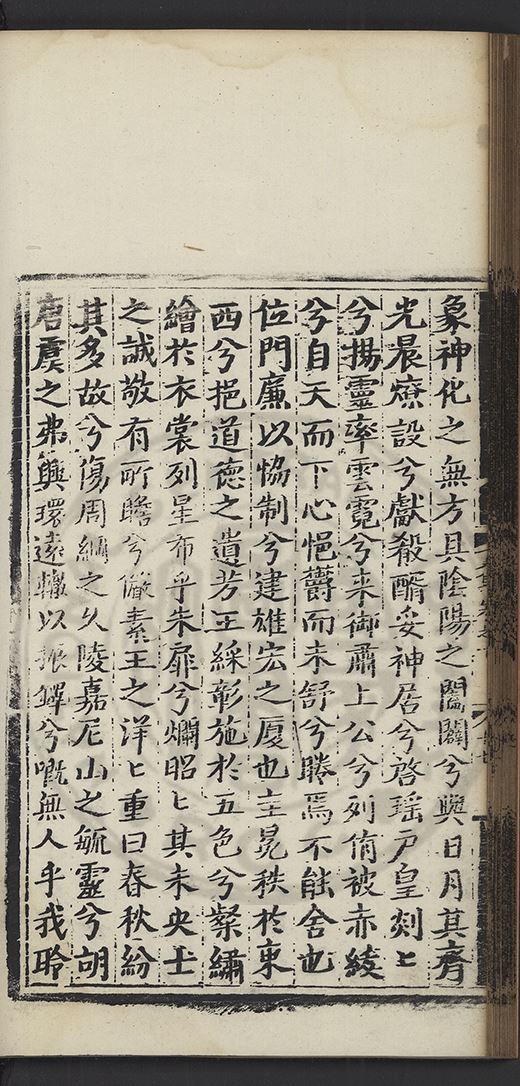 象神化之無方具陰陽之闔闢兮與日月其齊
光晨燎設兮獻殽醑妥神居兮啓瑶戸皇剡〻
兮揚靈率雲霓兮来御肅上公兮列侑被赤綾
兮自天而下心悒欝而未舒兮勝焉不能舍也
位門廉以恊制兮建雄宏之厦也主冕秩於東
西兮挹道德之遺芳玉綵彰施於五色兮槃繡
繪於衣裳列星布乎朱扉兮爛昭〻其未央士
之誠敬有所瞻兮儼素王之洋〻重曰春秋紛
其多故兮傷周綱之乆陵嘉尼山之毓靈兮胡
唐虞之弗興環遠轍以振鐸兮嘅無人乎我聆